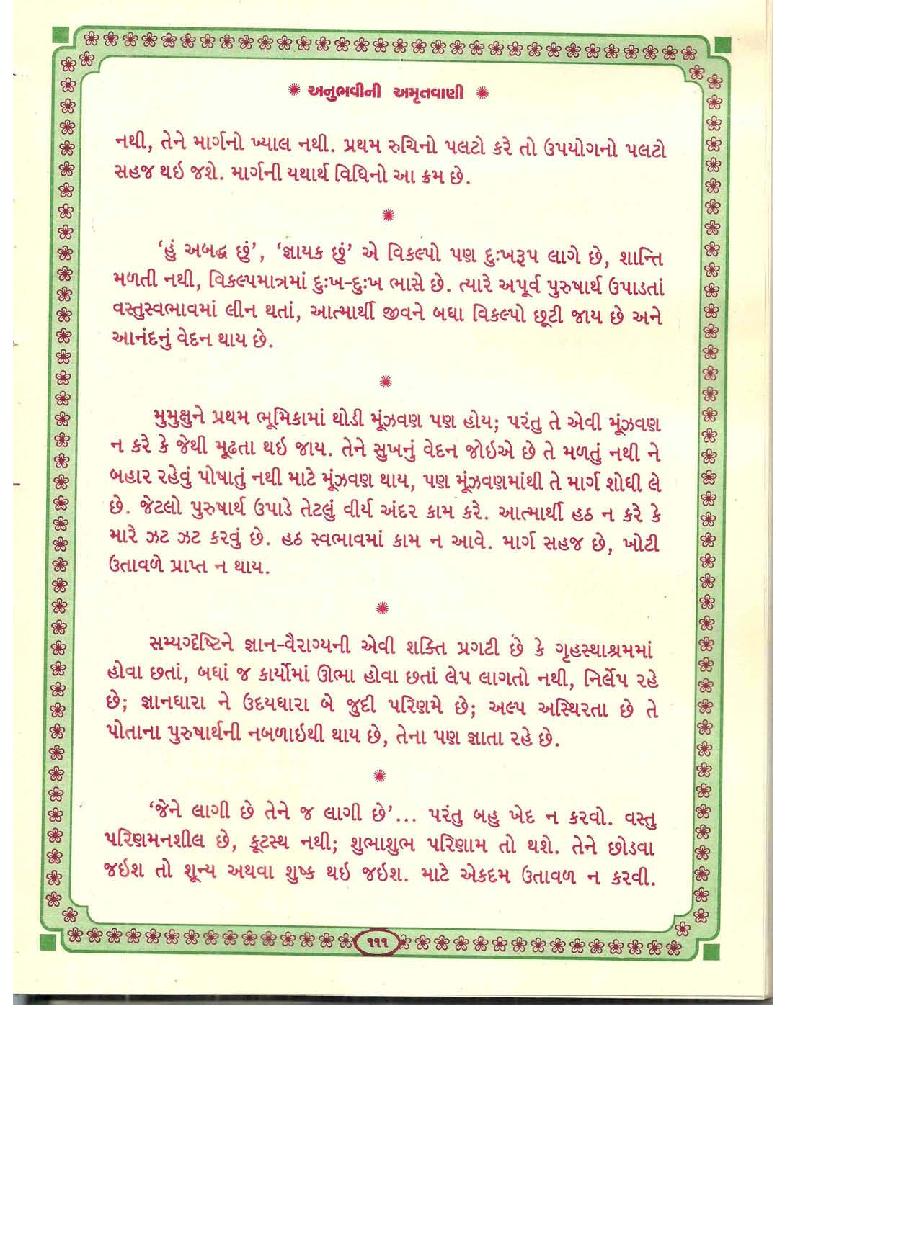 અનુભવીની અમૃતવાણી
નથી, તેને માર્ગનો ખ્યાલ નથી. પ્રથમ રુચિનો પલટો કરે તો ઉપયોગનો પલટો
સહજ થઇ જશે. માર્ગની યથાર્થ વિધિનો આ ક્રમ છે.
‘હું અબદ્ધ છું’, ‘જ્ઞાયક છું’ એ વિકલ્પો પણ દુઃખરૂપ લાગે છે, શાન્તિ
મળતી નથી, વિકલ્પમાત્રમાં દુઃખ-દુઃખ ભાસે છે. ત્યારે અપૂર્વ પુરુષાર્થ ઉપાડતાં
વસ્તુસ્વભાવમાં લીન થતાં, આત્માર્થી જીવને બધા વિકલ્પો છૂટી જાય છે અને
આનંદનું વેદન થાય છે.
મુમુક્ષુને પ્રથમ ભૂમિકામાં થોડી મૂંઝવણ પણ હોય; પરંતુ તે એવી મૂંઝવણ
ન કરે કે જેથી મૂઢતા થઇ જાય. તેને સુખનું વેદન જોઇએ છે તે મળતું નથી ને
બહાર રહેવું પોષાતું નથી માટે મૂંઝવણ થાય, પણ મૂંઝવણમાંથી તે માર્ગ શોધી લે
છે. જેટલો પુરુષાર્થ ઉપાડે તેટલું વીર્ય અંદર કામ કરે. આત્માર્થી હઠ ન કરે કે
મારે ઝટ ઝટ કરવું છે. હઠ સ્વભાવમાં કામ ન આવે. માર્ગ સહજ છે, ખોટી
ઉતાવળે પ્રાપ્ત ન થાય.
સમ્યગ્દૃષ્ટિને જ્ઞાન-વૈરાગ્યની એવી શક્તિ પ્રગટી છે કે ગૃહસ્થાશ્રમમાં
હોવા છતાં, બધાં જ કાર્યોમાં ઊભા હોવા છતાં લેપ લાગતો નથી, નિર્લેપ રહે
છે; જ્ઞાનધારા ને ઉદયધારા બે જુદી પરિણમે છે; અલ્પ અસ્થિરતા છે તે
પોતાના પુરુષાર્થની નબળાઇથી થાય છે, તેના પણ જ્ઞાતા રહે છે.
‘જેને લાગી છે તેને જ લાગી છે’... પરંતુ બહુ ખેદ ન કરવો. વસ્તુ
પરિણમનશીલ છે, કૂટસ્થ નથી; શુભાશુભ પરિણામ તો થશે. તેને છોડવા
જઇશ તો શૂન્ય અથવા શુષ્ક થઇ જઇશ. માટે એકદમ ઉતાવળ ન કરવી.
૧૧૧